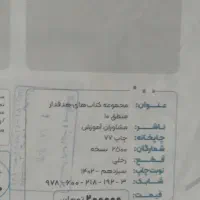 عنوان: مجموعه کتاب‌های هدفدار
منطق ۱۰
ناشر: مشاوران آموزش
چاپخانه: چاپ ۷۷
شمارگان: ۲۵۰۰ نسخه
قطع: رحلی
نوبت چاپ: سیزدهم - ۱۴۰۲
شابک: ۹۷۸-۶۰۰-۲۱۸-۱۹۲-۳
قیمت: